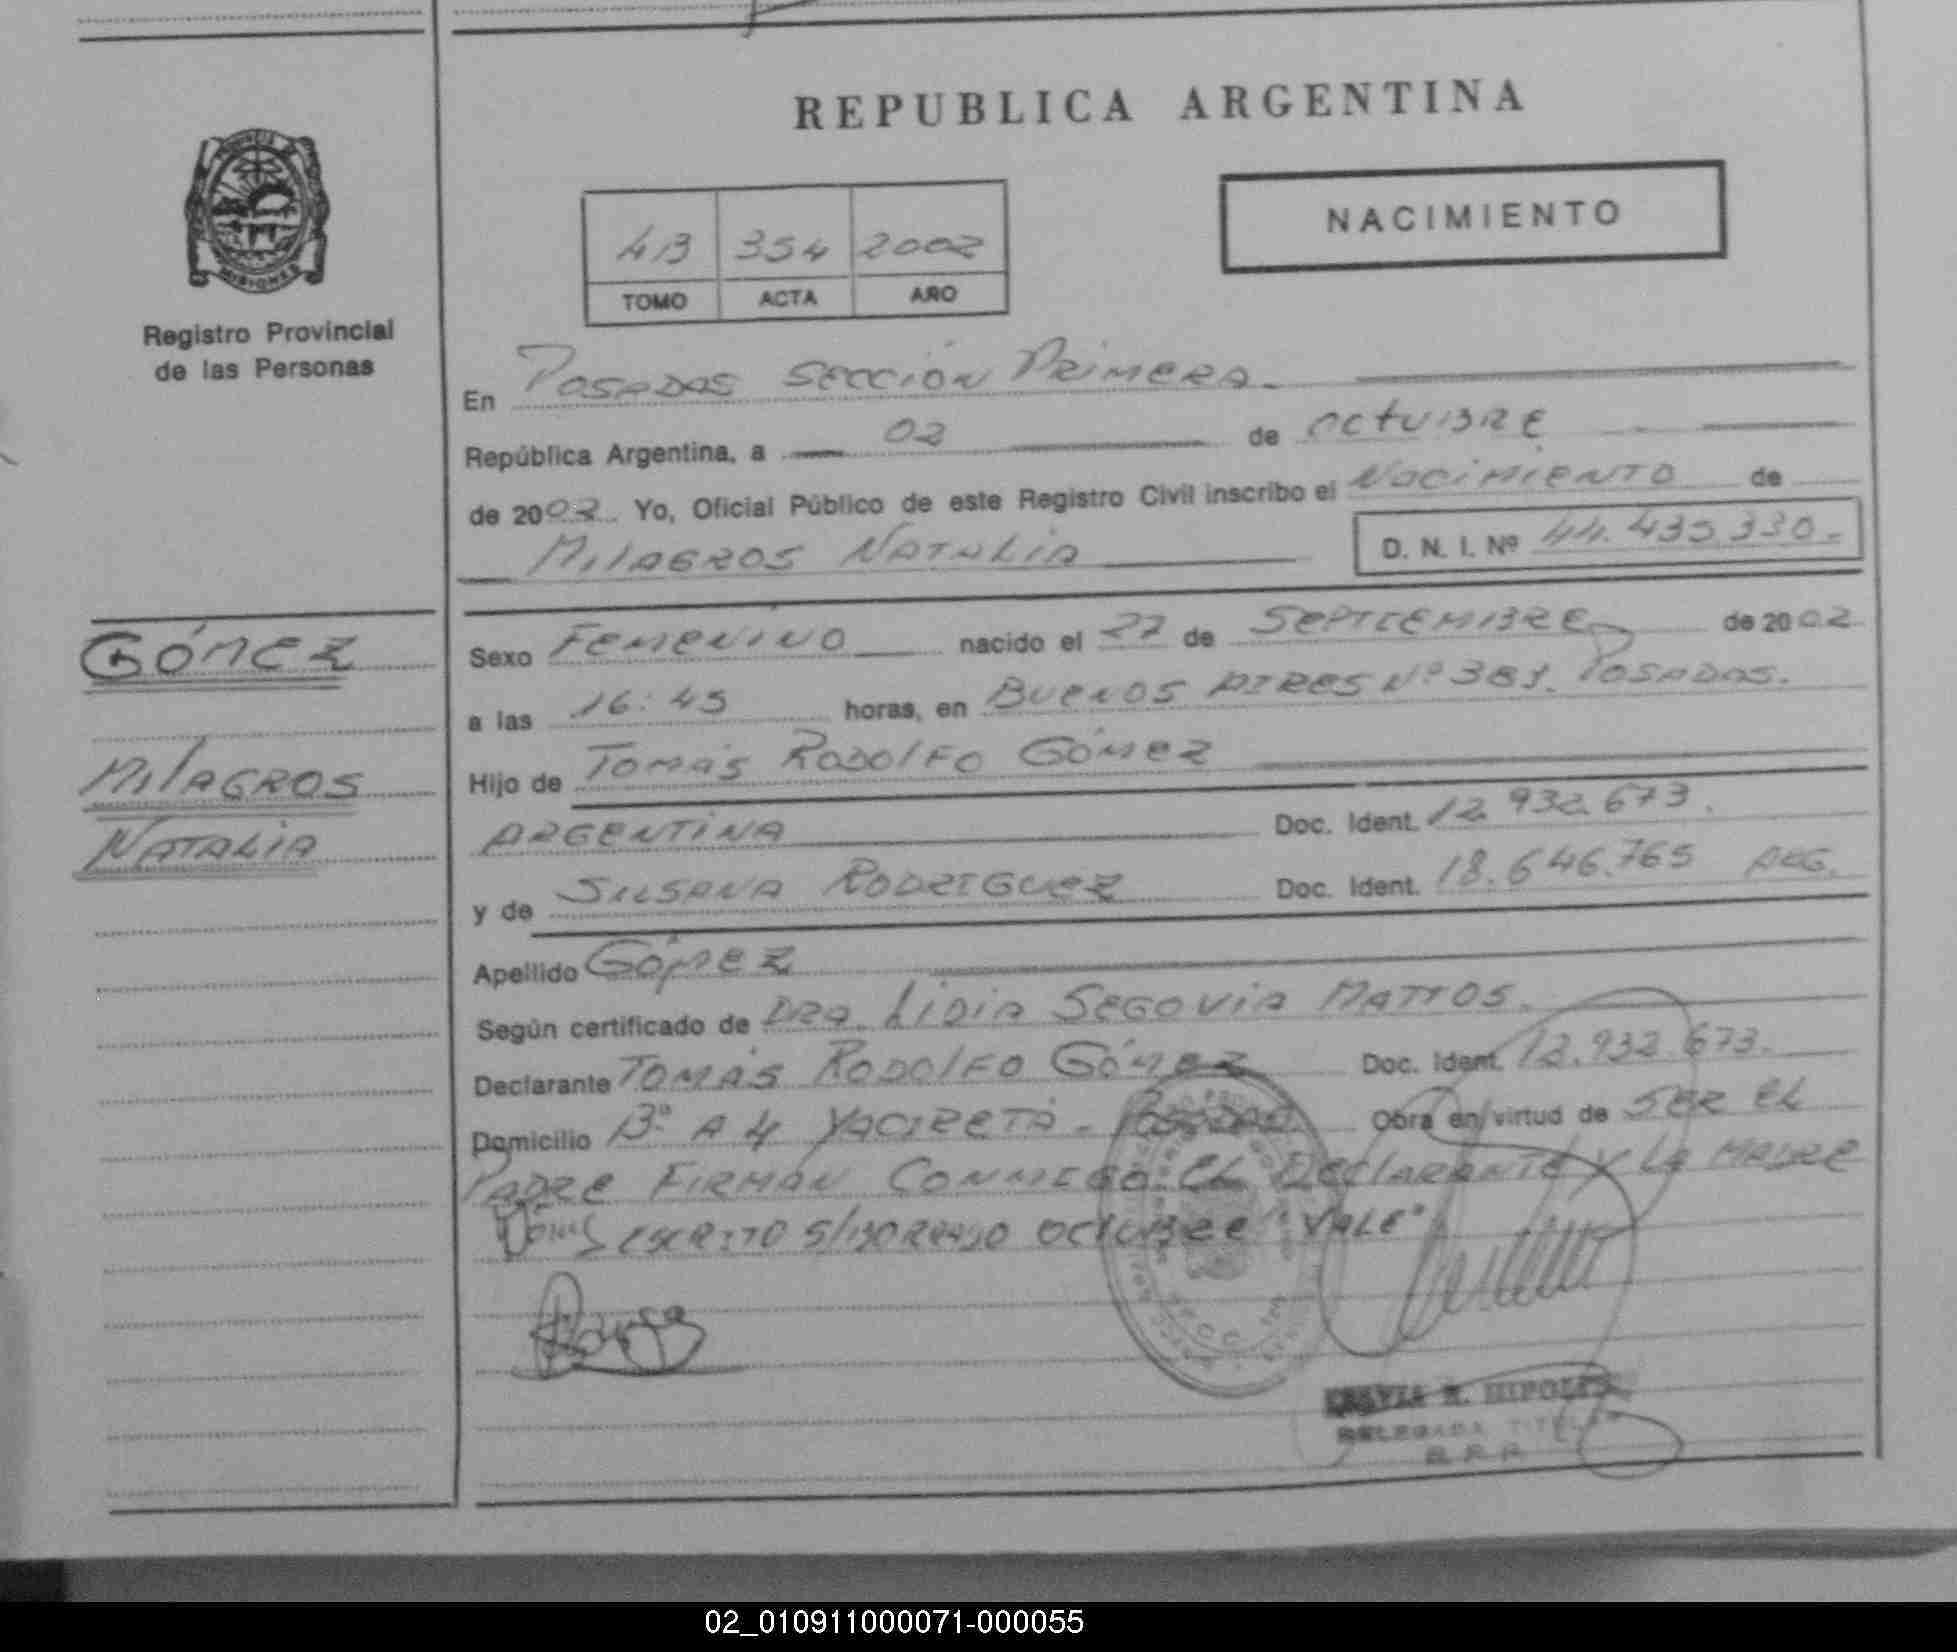 REPUBLICA ARGENTINA
NACIMIENTO
4B 354 2002
TOMO ACTA AÑO
MISIONES
Registro Provincial
de las Personas
En Posadas Sección Primera.
República Argentina, a 02 de octubre
de 2002. Yo, Oficial Público de este Registro Civil inscribo el Nacimiento de
Milagros Natalia D. N. I. Nº 44.435.330.-
GÓMEZ
MILAGROS
NATALIA
Sexo Femenino nacido el 27 de Septiembre de 2002
a las 16:45 horas, en Buenos Aires Nº 381. Posadas.
Hijo de Tomás Rodolfo Gómez
Argentina Doc. Ident. 12.932.673.
y de Susana Rodriguez Doc. Ident. 18.646.765 ARG.
Apellido Gómez
Según certificado de Dra. Lidia Segovia Mattos.
Declarante Tomás Rodolfo Gómez Doc. Ident. 12.932.673.
Domicilio Bº A4 Yacireta - Posadas Obra en virtud de ser el
Padre Firman Conmigo el Declarante y la Madre
escrito s/borrado octubre "Vale"
R. HIPOLI
DELEGADA TITULAR
02_010911000071-000055